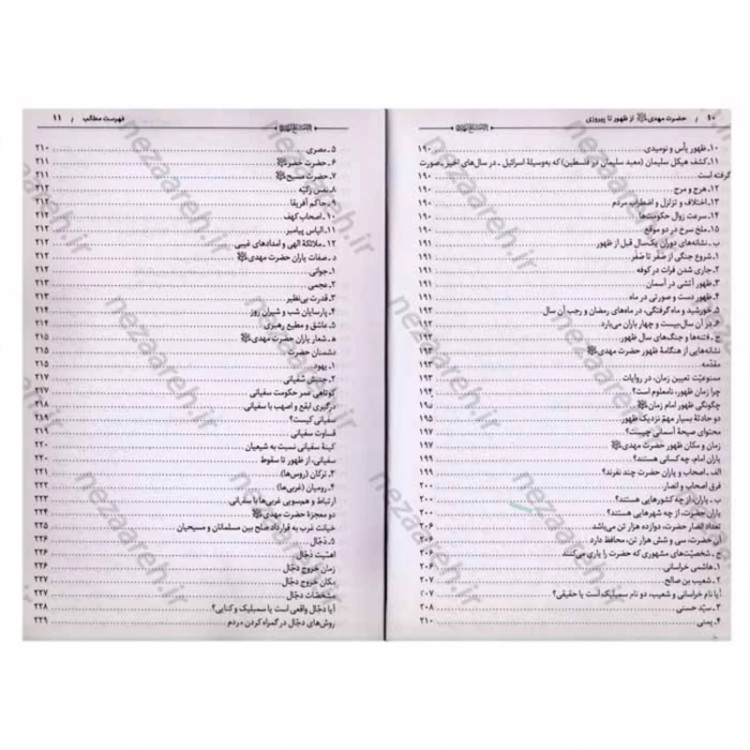 ۱۰ / حضرت مهدی از ظهور تا پیروزی
۱۰ـ ظهور یأس و نومیدی ۱۹۰
۱۱ـ کشف هیکل سلیمان (معبد سلیمان در فلسطین) که به‌وسیلهٔ اسرائیل ـ در سال‌های اخیر ـ صورت
گرفته است ۱۹۰
۱۲ـ هرج و مرج ۱۹۰
۱۳ـ اختلاف و تزلزل و اضطراب مردم ۱۹۰
۱۴ـ سرعت زوال حکومت‌ها ۱۹۰
۱۵ـ ملخ سرخ در دو موقع ۱۹۰
ب ـ نشانه‌های دوران یک‌سال قبل از ظهور ۱۹۱
۱ـ شروع جنگی از صَفَر تا صَفَر ۱۹۱
۲ـ جاری شدن فرات در کوفه ۱۹۱
۳ـ ظهور آتشی در آسمان ۱۹۱
۴ـ ظهور دست و صورتی در ماه ۱۹۱
۵ـ خورشید و ماه گرفتگی، در ماه‌های رمضان و رجب آن سال
۶ـ در آن سال بیست و چهار باران می‌بارد
ج ـ فتنه‌ها و جنگ‌های سال ظهور
نشانه‌هایی از هنگامهٔ ظهور حضرت مهدی
مقدّمه
ممنوعیّت تعیین زمان، در روایات ۱۹۳
چرا زمان ظهور، نامعلوم است؟ ۱۹۴
چگونگی ظهور امام زمان ۱۹۵
دو حادثهٔ بسیار مهمّ نزدیک ظهور ۱۹۵
محتوای صیحهٔ آسمانی چیست؟ ۱۹۷
زمان و مکان ظهور حضرت مهدی ۱۹۷
یاران امام، چه کسانی هستند؟
الف ـ اصحاب و یاران حضرت چند نفرند؟ ۱۹۹
فرق اصحاب و انصار
ب ـ یاران، از چه کشورهایی هستند؟ ۲۰۰
یاران حضرت، از چه شهرهایی هستند؟ ۲۰۰
تعداد انصار حضرت، دوازده هزار تن می‌باشد ۲۰۶
آن حضرت، سی و شش هزار تن، محافظ دارد ۲۰۶
ج ـ شخصیّت‌های مشهوری که حضرت را یاری می‌کنند ۲۰۶
۱ـ هاشمی خراسانی ۲۰۶
۲ـ شعیب بن صالح ۲۰۷
آیا نام خراسانی و شعیب، دو نام سمبلیک است یا حقیقی؟ ۲۰۷
۳ـ سیّد حسنی ۲۰۸
۴ـ یمنی ۲۱۰
فهرست مطالب / ۱۱
۵ ـ مصری ۲۱۰
۶ ـ حضرت خضر ۲۱۱
۷ ـ حضرت مسیح ۲۱۱
۸ ـ نفس زکیّه
۹ـ حاکم آفریقا
۱۰ـ اصحاب کهف
۱۱ـ الیاس پیامبر ۲۱۲
۱۲ـ ملائکهٔ الهی و امدادهای غیبی ۲۱۲
د ـ صفات یاران حضرت مهدی ۲۱۲
۱ـ جوانی ۲۱۲
۲ـ عجمی ۲۱۳
۳ـ قدرت بی‌نظیر ۲۱۳
۴ـ پارسایان شب و شیران روز ۲۱۴
۵ ـ عاشق و مطیع رهبری ۲۱۴
ه ـ شعار یاران حضرت مهدی ۲۱۵
دشمنان حضرت ۲۱۵
۱ـ یهود ۲۱۵
۲ـ جنبش سُفیانی
کوتاهی عمر حکومت سفیانی
درگیری ابقع و اصهب با سفیانی
سفیانی کیست؟
قساوت سفیانی ۲۱۹
کینهٔ سفیانی نسبت به شیعیان ۲۲۰
سفیانی، از ظهور تا سقوط ۲۲۰
۳ـ ترکان (روس‌ها) ۲۲۱
۴ـ رومیان (غربی‌ها)
ارتباط و هم‌سویی غربی‌ها با سفیانی
دو معجزهٔ حضرت مهدی
خیانت غرب به قرارداد صلح بین مسلمانان و مسیحیان ۲۲۵
۵ ـ دجّال ۲۲۶
اهمّیّت دجّال ۲۲۶
زمان خروج دجّال ۲۲۶
مکان خروج دجّال ۲۲۷
مشخصات دجّال ۲۲۷
آیا دجّال واقعی است یا سمبلیک و کنایی؟ ۲۲۸
روش‌های دجّال در گمراه کردن مردم ۲۲۹
nezaareh.ir